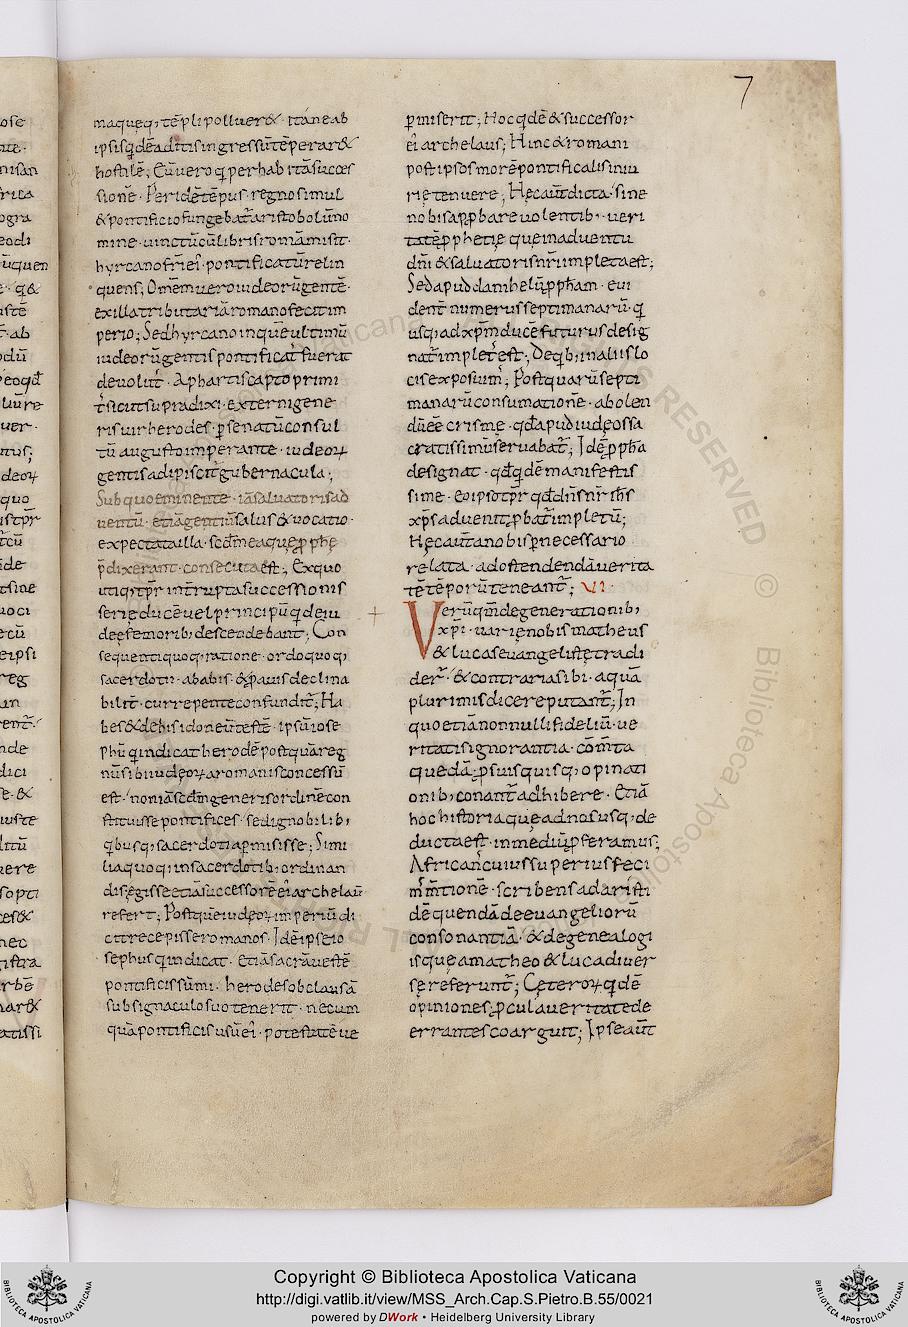 7
maqueq; tēpli polluer&. Ita ne ab
ipsis qdē aditis ingressu tēperar&
hostilē; Cū vero qp̄ erhab ita succes
sionē. Per idē tēpus. regno simul
& pontificio fungebat̄ aristobolus no
mine. uinctū cū liberis romā misit.
hyrcano fr̄i ei. pontificatū relin
quens; Omēm uero iudeorū gentē.
ex illa tributariā romano fecit im
perio; Sed hyrcano in quē ultimū
iudeorū gentis pontificat fuerat
deuolut. A phartis capto primi
t̄ sicut supra dixi. externi gene
ris uir herodes. p̄ senatū consul
tū augusto imperante. iudeoꝝ
gentis adipiscit̄ gubernacula;
Sub quo eminente. iā saluatoris ad
uentū. etiā gentiū salus & uocatio.
expectata illa. scdm̄ ea que p̄phē
p̄dixerant. consecuta est; Ex quo
utiq; tp̄r int̄rupta successionis
serie ducē uel principū q de iu
dee femorib; descendebant; Con
sequenti quoq; ratione. ordo quoq;
sacerdotii. ab abis. & p̄auis declina
bilit. currepente confundit̄; Ha
bes & de his idoneū testē. ipsū iose
phū q indicat herodē postquā reg
nū sibi iudeoꝝ a romanis concessū
est. non iā scdm̄ generis ordinē con
stituisse pontifices. sed ignobilib;
qbusq; sacerdotia p̄misisse; Simi
lia quoq; in sacerdotib; ordinan
dis. egisse etiā successorē ei archelaū
refert; Post quē iudeoꝝ imperiū di
cit recepisse romanos. Idē ipse io
sephus q indicat. etiā sacrā uestē
pontificis sūmi. herodes obclausā
sub signaculo suo tenerit. nec um
quā pontificis usū ei. potestatē ue
p̄miserit; Hoc qdē & successor
ei archelaus; Hinc & romani
post ipsos morē pontificalis iniu
rię tenuere; Hęc aut̄ dicta. sine
nobis ad p̄bare uolentib;. ueri
tatē p̄phetię que in aduentu
dn̄i & saluatoris nr̄i impleta est;
Sed apud danihelū p̄pham. eui
dent̄ numerus septimanarū. q
usq; ad xp̄m ducē futurus desig
nat̄ implet est; De qb; in aliis lo
cis exposuim; Post quarū septi
manarū consumationē. abolen
dū eē crisme. qd apud iudęos sa
cratissimū seruabat̄; Idē p̄pha
designat. qd qdē manifestis
sime. eo ipso tp̄r qd dn̄s nr̄ ihs
xp̄s aduenit p̄bat̄ impletū;
Hęc aut̄ a nobis p̄necessario
relata. ad ostendendā uerita
tē tēporū teneant̄; VI.
Verū qm̄ de generationib;
xp̄i. uarię nobis matheus
& lucas euangelistę tradi
der. & contraria sibi. a quā
plurimis dicere putant̄; In
quo etiā nonnulli fideliū. ue
ritatis ignorantia. com̄ta
quedā p̄ suis quisq; opinati
onib; conant̄ adhibere. Etiā
hoc historia que ad nos usq; de
ducta est. in mediū p̄feramus;
African cuius superius feci
m̄ m̄tionē. scribens ad aristi
dē quendā de euangeliorū
consonantiā. & de genealogi
is que a matheo & luca diuer
sę referunt̄; Cęteroꝝ qdē
opiniones p̄cul a ueritate de
errantes coarguit; Ipse aut̄
Copyright © Biblioteca Apostolica Vaticana
http://digi.vatlib.it/view/MSS_Arch.Cap.S.Pietro.B.55/0021
powered by DWork • Heidelberg University Library